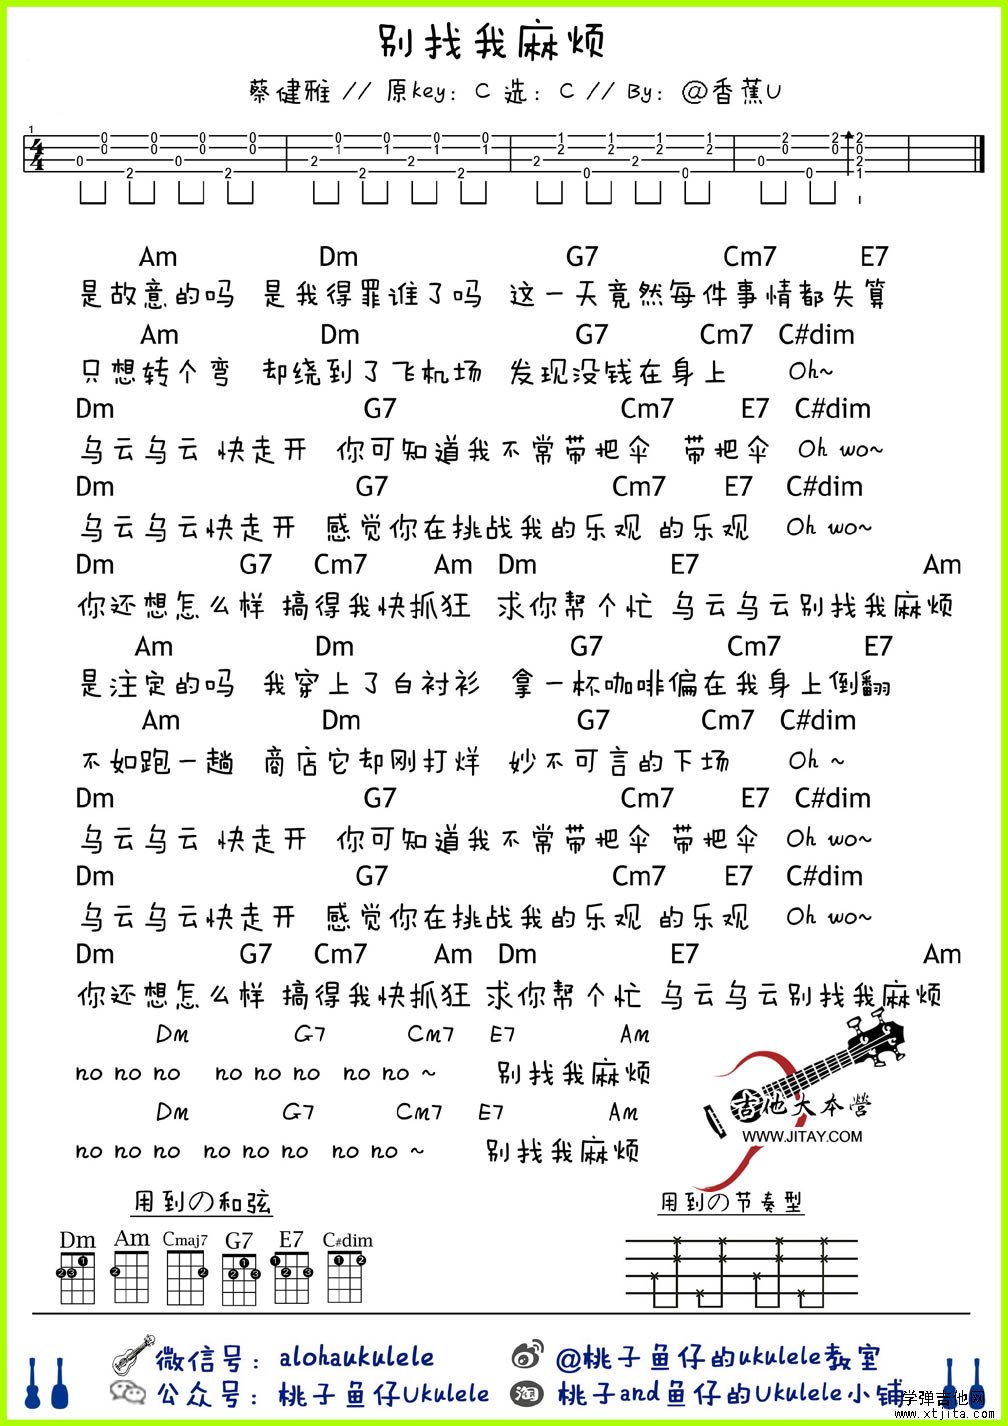 别找我麻烦
蔡健雅 // 原key：C 选：C // By：@香蕉U
1
4/4
0 2 0 0 0 2 0 0 0 2 1 0 2 1 0 2 1 0 2 1 0 2 2 1 0 2 1 2 2 1 0 2 1 0 0 2 0 0 2 2 0 2 1
Am Dm G7 Cm7 E7
是故意的吗 是我得罪谁了吗 这一天竟然每件事情都失算
Am Dm G7 Cm7 C#dim
只想转个弯 却绕到了飞机场 发现没钱在身上 Oh~
Dm G7 Cm7 E7 C#dim
乌云乌云 快走开 你可知道我不常带把伞 带把伞 Oh wo~
Dm G7 Cm7 E7 C#dim
乌云乌云快走开 感觉你在挑战我的乐观 的乐观 Oh wo~
Dm G7 Cm7 Am Dm E7 Am
你还想怎么样 搞得我快抓狂 求你帮个忙 乌云乌云别找我麻烦
Am Dm G7 Cm7 E7
是注定的吗 我穿上了白衬衫 拿一杯咖啡偏在我身上倒翻
Am Dm G7 Cm7 C#dim
不如跑一趟 商店它却刚打烊 妙不可言的下场 Oh ~
Dm G7 Cm7 E7 C#dim
乌云乌云 快走开 你可知道我不常带把伞 带把伞 Oh wo~
Dm G7 Cm7 E7 C#dim
乌云乌云快走开 感觉你在挑战我的乐观 的乐观 Oh wo~
Dm G7 Cm7 Am Dm E7 Am
你还想怎么样 搞得我快抓狂 求你帮个忙 乌云乌云别找我麻烦
Dm G7 Cm7 E7 Am
no no no no no no no no ~ 别找我麻烦
Dm G7 Cm7 E7 Am
no no no no no no no no ~ 别找我麻烦
吉他大本营
WWW.JITAY.COM
用到の和弦 用到の节奏型
Dm Am Cmaj7 G7 E7 C#dim
微信号：alohaukulele @桃子鱼仔的ukulele教室
公众号：桃子鱼仔Ukulele 淘 桃子and鱼仔的Ukulele小铺
学弹吉他网
www.xtjita.com